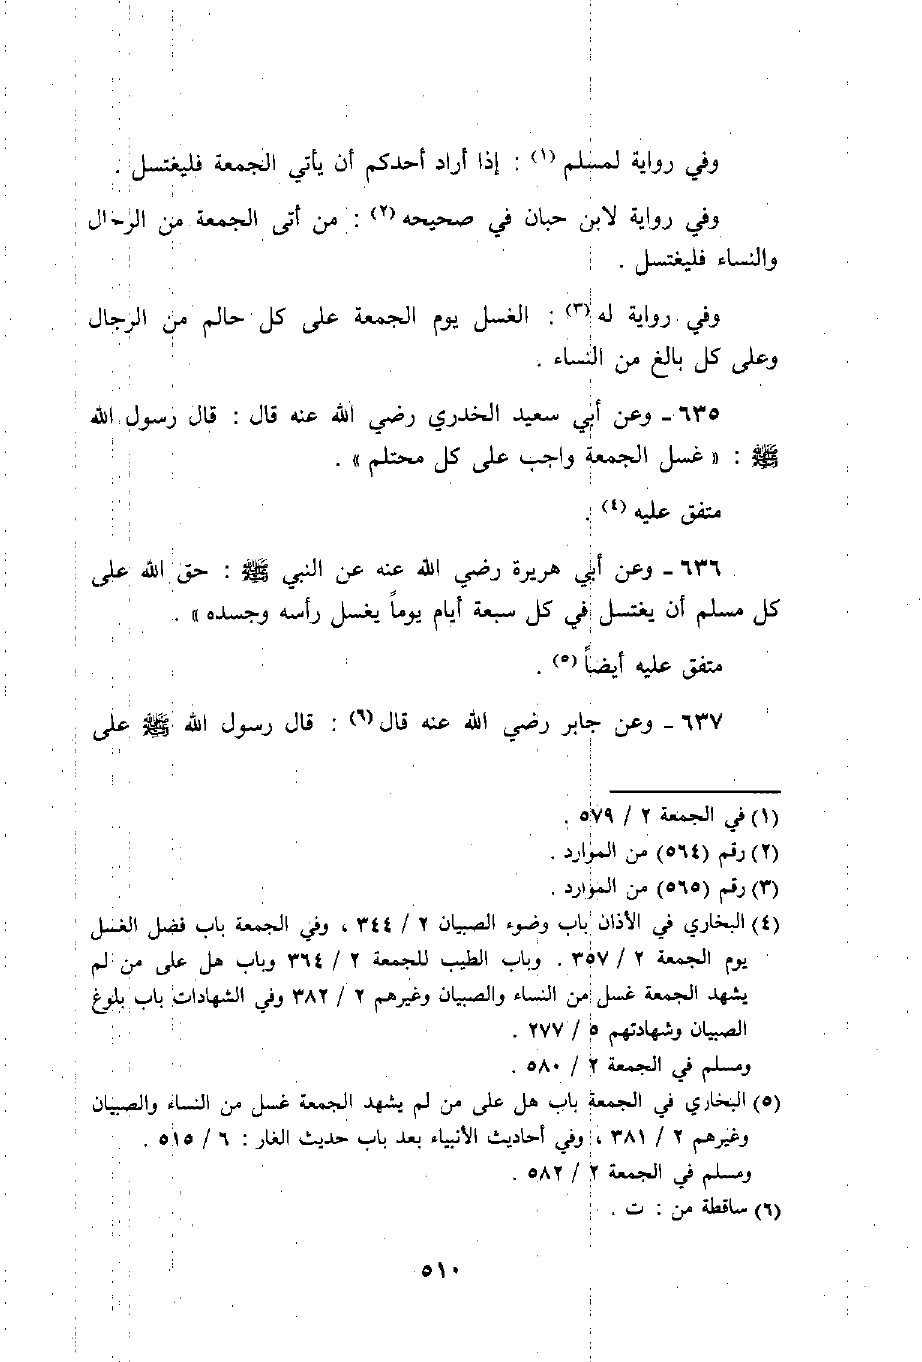 وفي رواية لمسلم (١) : إذا أراد أحدكم أن يأتي الجمعة فليغتسل .
وفي رواية لابن حبان في صحيحه (٢) : من أتى الجمعة من الرجال
والنساء فليغتسل .
وفي رواية له (٣) : الغسل يوم الجمعة على كل حالم من الرجال
وعلى كل بالغ من النساء .
٦٣٥ ـ وعن أبي سعيد الخدري رضي الله عنه قال : قال رسول الله
ﷺ : « غسل الجمعة واجب على كل محتلم » .
متفق عليه (٤) .
٦٣٦ ـ وعن أبي هريرة رضي الله عنه عن النبي ﷺ : حق الله على
كل مسلم أن يغتسل في كل سبعة أيام يوماً يغسل رأسه وجسده » .
متفق عليه أيضاً (٥) .
٦٣٧ ـ وعن جابر رضي الله عنه قال (٦) : قال رسول الله ﷺ على
(١) في الجمعة ٢ / ٥٧٩ .
(٢) رقم (٥٦٤) من الموارد .
(٣) رقم (٥٦٥) من الموارد .
(٤) البخاري في الأذان باب وضوء الصبيان ٢ / ٣٤٤ ، وفي الجمعة باب فضل الغسل
يوم الجمعة ٢ / ٣٥٧ . وباب الطيب للجمعة ٢ / ٣٦٤ وباب هل على من لم
يشهد الجمعة غسل من النساء والصبيان وغيرهم ٢ / ٣٨٢ وفي الشهادات باب بلوغ
الصبيان وشهادتهم ٥ / ٢٧٧ .
ومسلم في الجمعة ٢ / ٥٨٠ .
(٥) البخاري في الجمعة باب هل على من لم يشهد الجمعة غسل من النساء والصبيان
وغيرهم ٢ / ٣٨١ ، وفي أحاديث الأنبياء بعد باب حديث الغار : ٦ / ٥١٥ .
ومسلم في الجمعة ٢ / ٥٨٢ .
(٦) ساقطة من : ت .
٥١٠